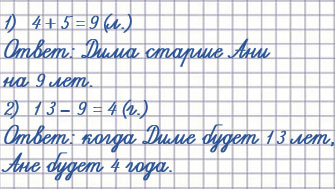 1) 4 + 5 = 9 (л.)
Ответ: Дима старше Ани
на 9 лет.
2) 13 – 9 = 4 (г.)
Ответ: когда Диме будет 13 лет,
Ане будет 4 года.